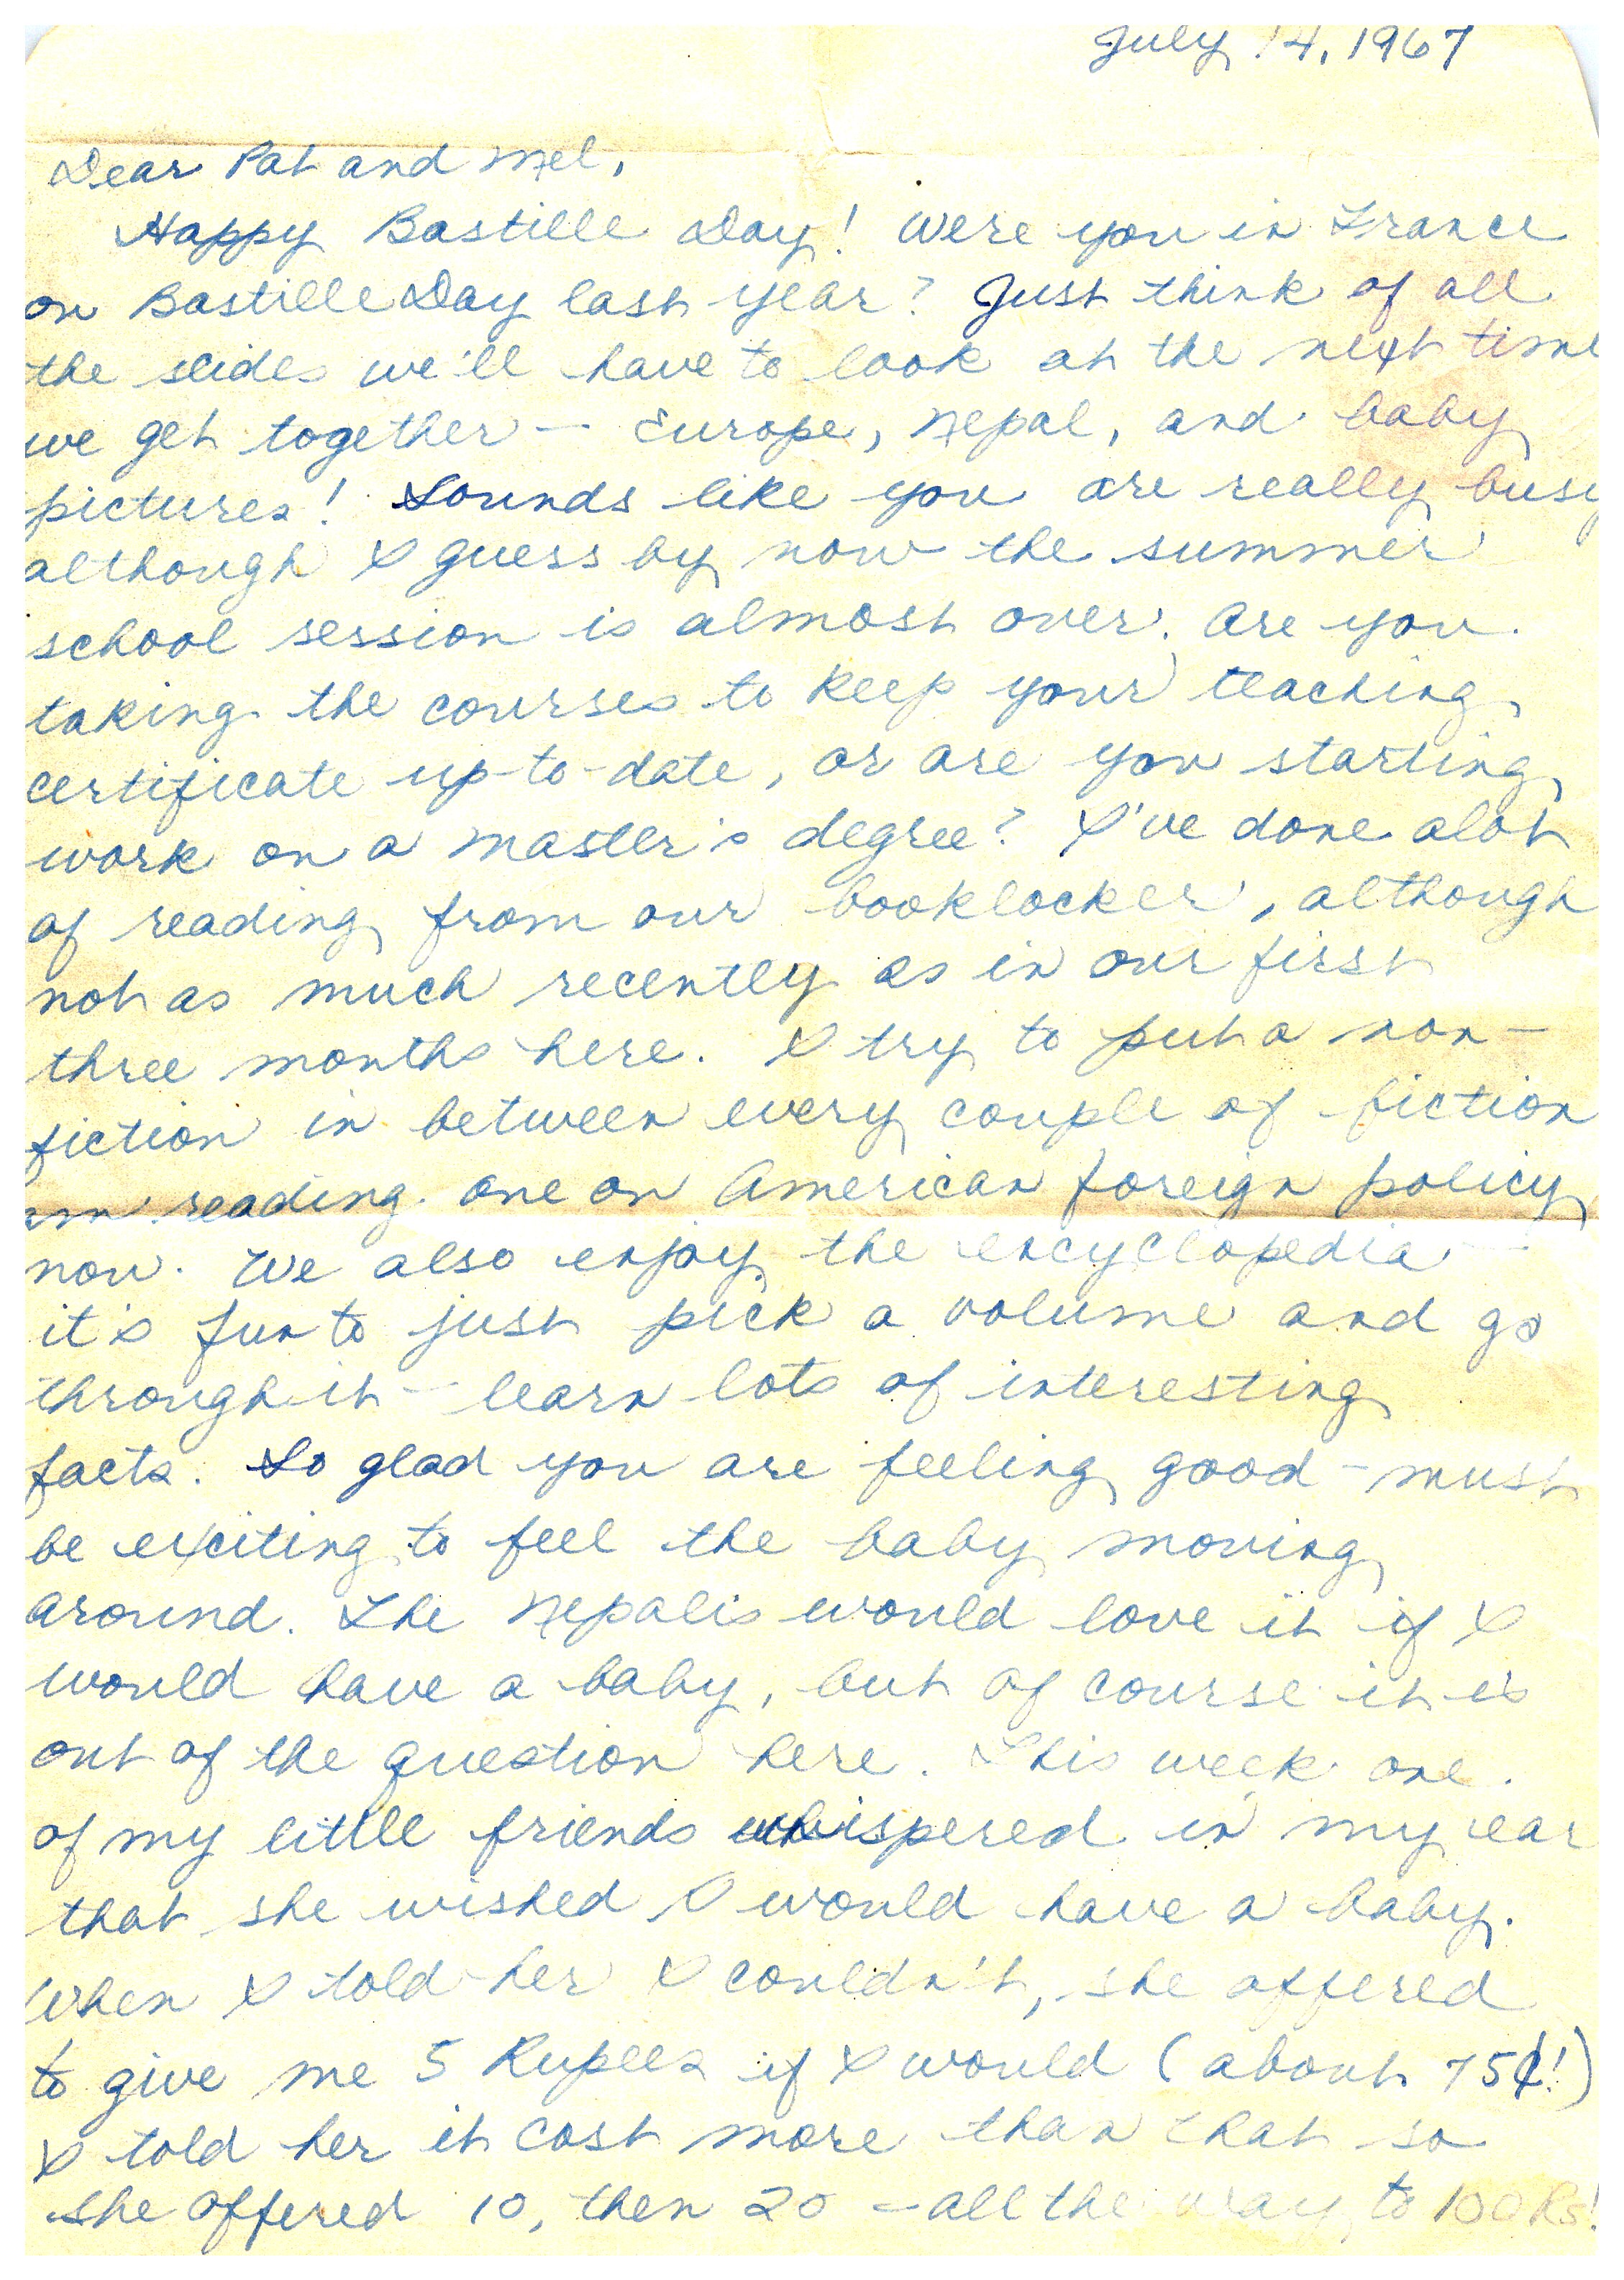 July 14, 1967
Dear Pat and Mel,
Happy Bastille Day! Were you in France
on Bastille Day last year? Just think of all
the slides we'll have to look at the next time
we get together — Europe, Nepal, and baby
pictures! Sounds like you are really busy
although I guess by now the summer
school session is almost over. Are you
taking the courses to keep your teaching
certificate up-to-date, or are you starting
work on a master's degree? I've done alot
of reading from our booklocker, although
not as much recently as in our first
three months here. I try to put a non-
fiction in between every couple of fiction
am reading one on American foreign policy
now. We also enjoy the encyclopedia —
it's fun to just pick a volume and go
through it — learn lots of interesting
facts. So glad you are feeling good - must
be exciting to feel the baby moving
around. The Nepalis would love it if I
would have a baby, but of course it is
out of the question here. This week one
of my little friends whispered in my ear
that she wished I would have a baby.
When I told her I couldn't, she offered
to give me 5 Rupees if I would (about 75¢!)
I told her it cost more than that so
she offered 10, then 20 — all the way to 100 Rs!